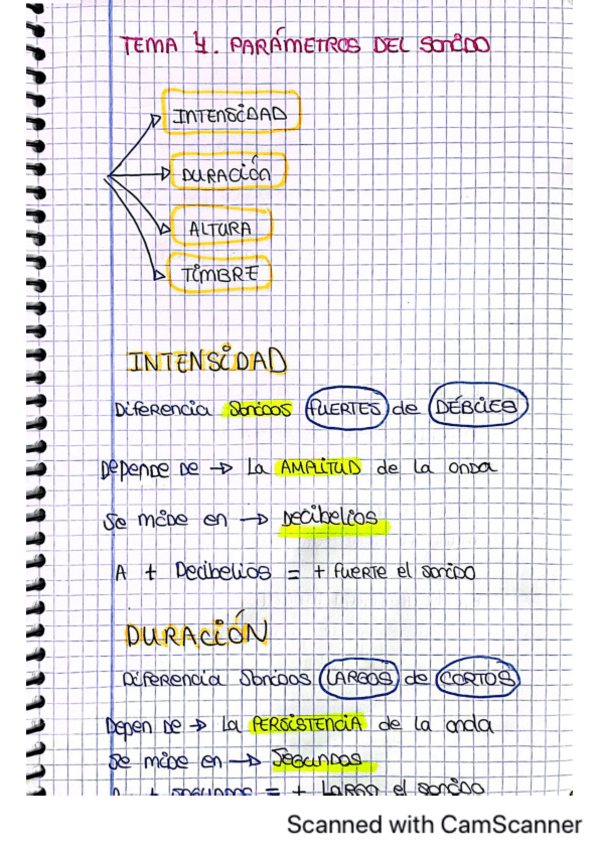 TEMA 4. PARÁMETROS DEL SONIDO
INTENSIDAD
DURACIÓN
ALTURA
TIMBRE
INTENSIDAD
DIFERENCIA SONIDOS FUERTES de DÉBILES
DEPENDE DE → LA AMPLITUD de la onda
Se mide en → Decibelios
A + Decibelios = + FUERTE el sonido
DURACIÓN
DIFERENCIA SONIDOS LARGOS de CORTOS
Depen de → La PERSISTENCIA de la onda
Se mide en → Segundos
A + segundos = + LARGO el sonido
Scanned with CamScanner